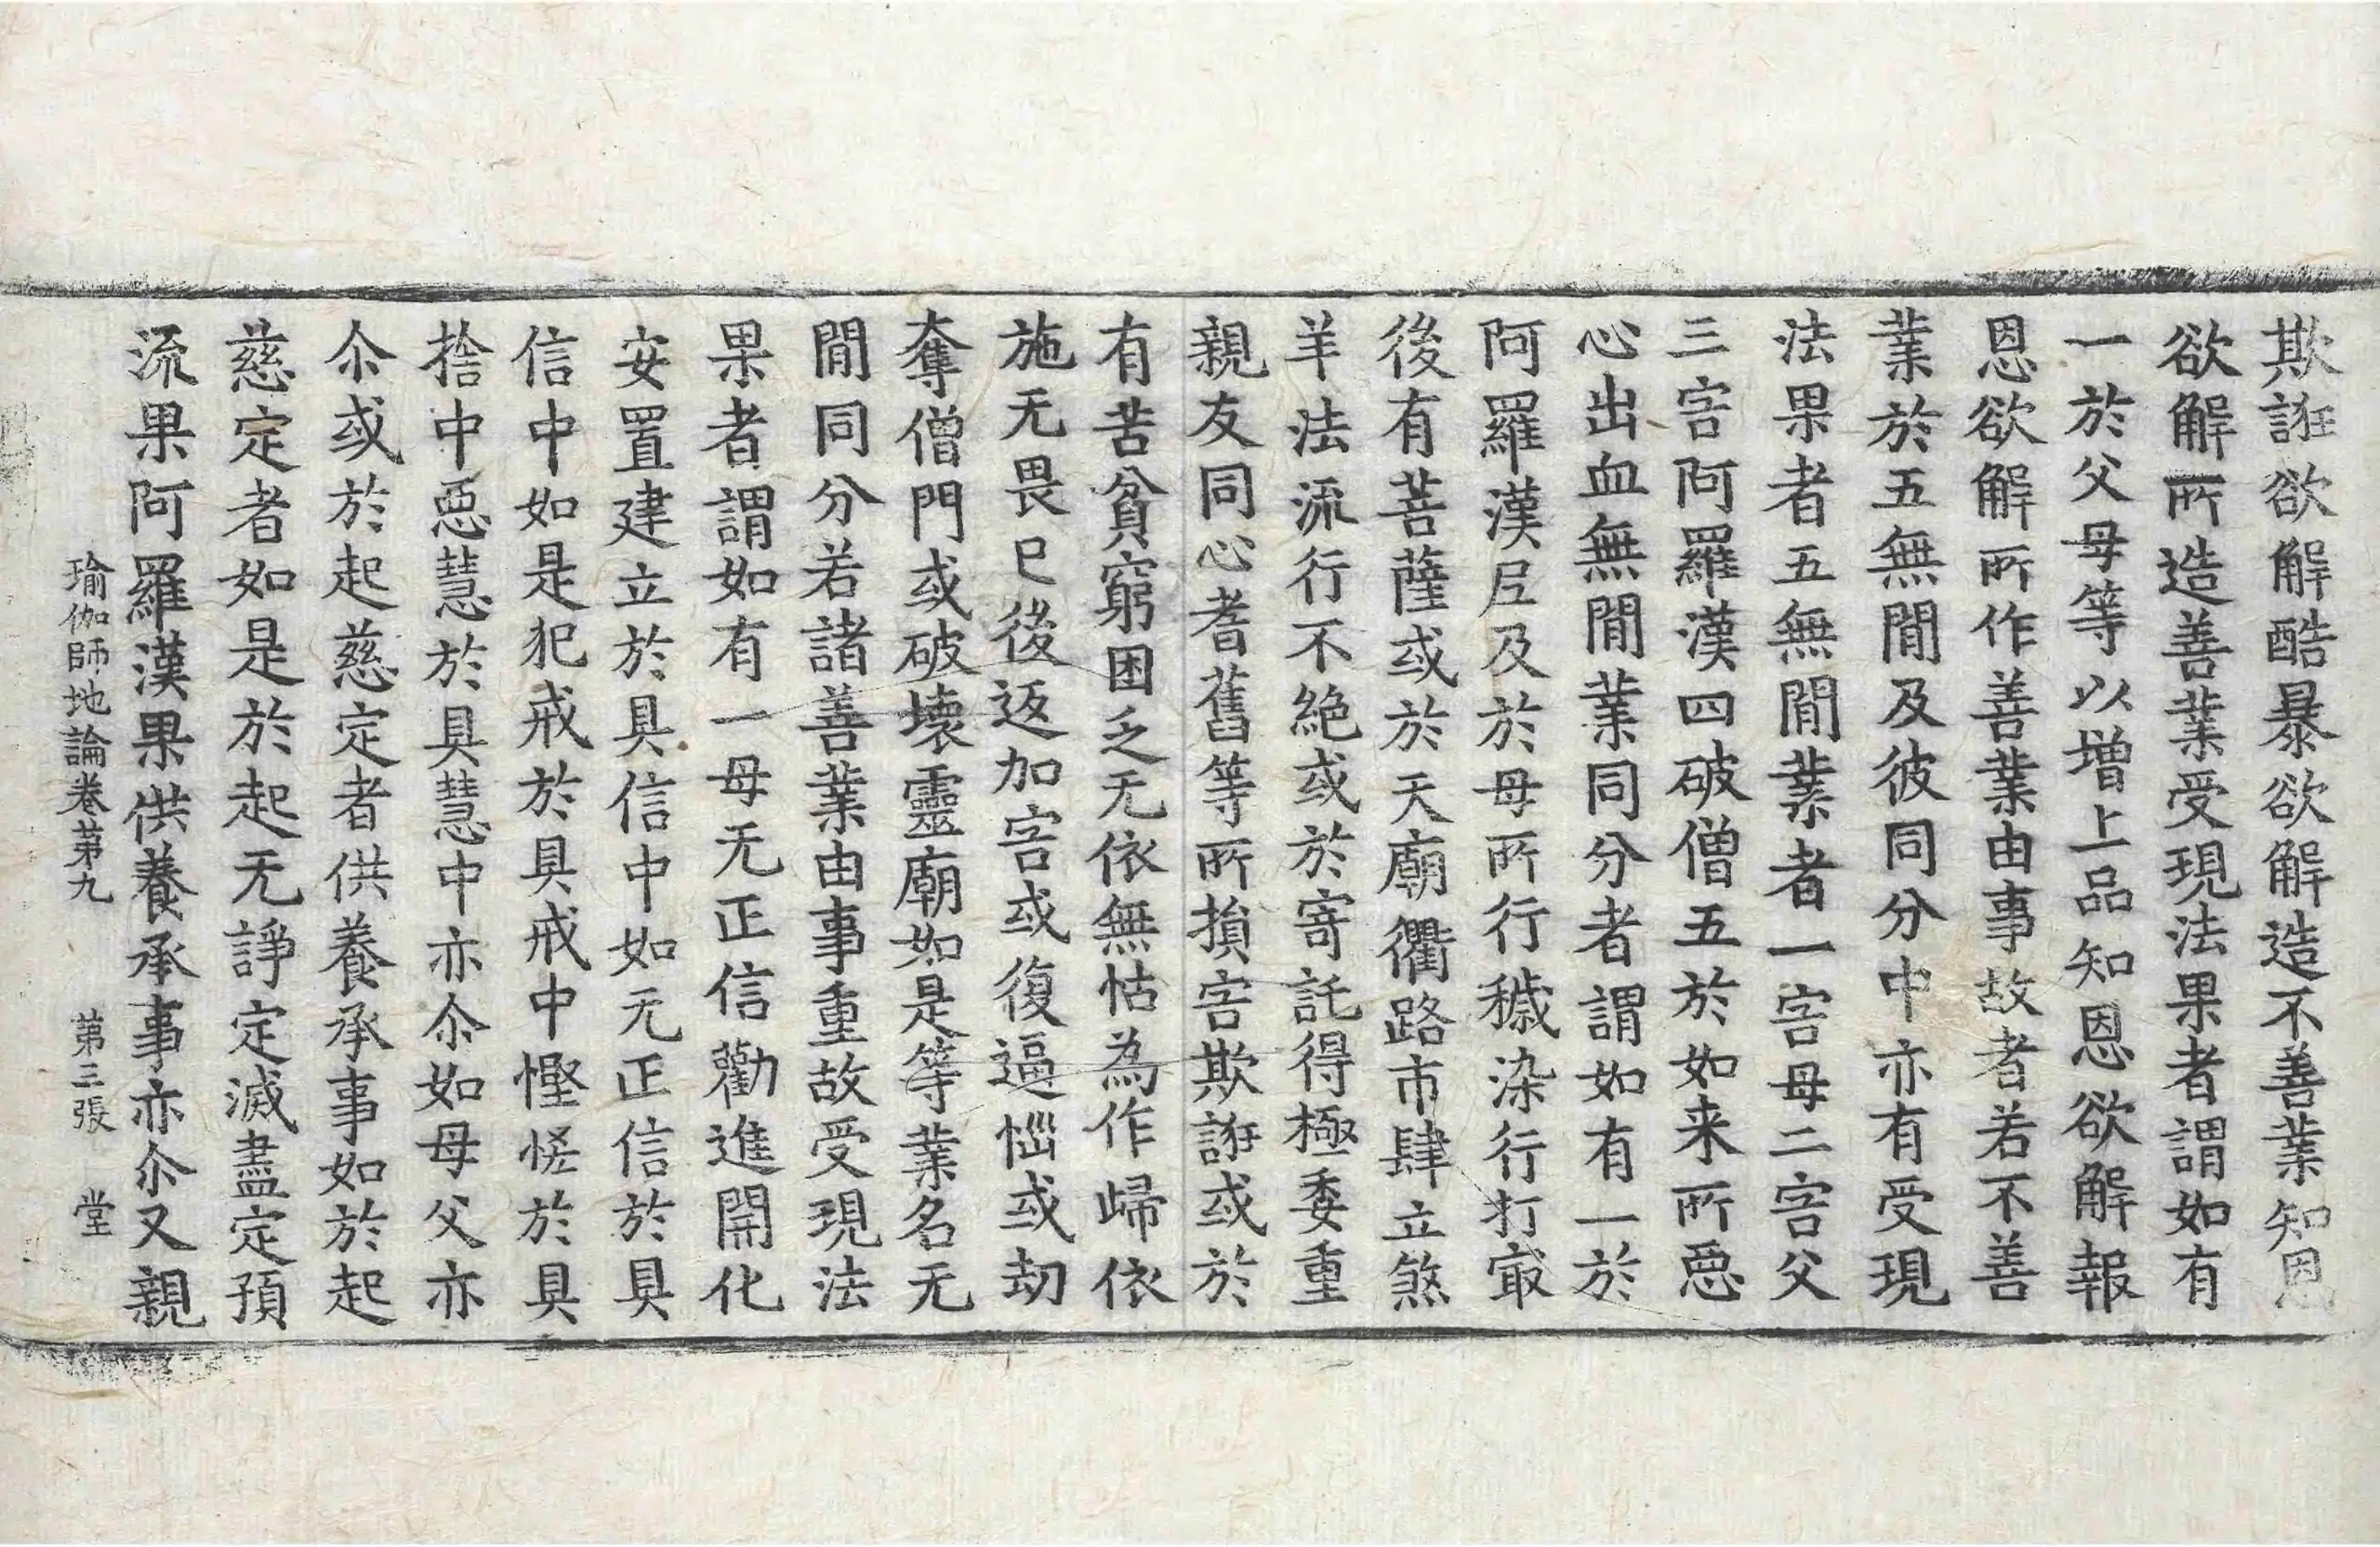 欺誑欲解酷暴欲解造不善業知恩
欲解所造善業受現法果者謂如有
一於父母等以增上品知恩欲解報
恩欲解所作善業由事故者若不善
業於五無閒及彼同分中亦有受現
法果者五無閒業者一害母二害父
三害阿羅漢四破僧五於如来所惡
心出血無閒業同分者謂如有一於
阿羅漢尼及於母所行穢染行打㝡
後有菩薩或於天廟衢路市肆立煞
羊法流行不絶或於寄託得極委重
親友同心耆舊等所損害欺誑或於
有苦貧窮困乏无依無怙為作歸依
施无畏已後返加害或復逼惱或劫
奪僧門或破壞靈廟如是等業名无
閒同分若諸善業由事重故受現法
果者謂如有一母无正信勸進開化
安置建立於具信中如无正信於具
信中如是犯戒於具戒中慳悋於具
捨中惡慧於具慧中亦尒如母父亦
尒或於起慈定者供養承事如於起
慈定者如是於起无諍定滅盡定預
流果阿羅漢果供養承事亦尒又親
瑜伽師地論卷第九 第三張 堂